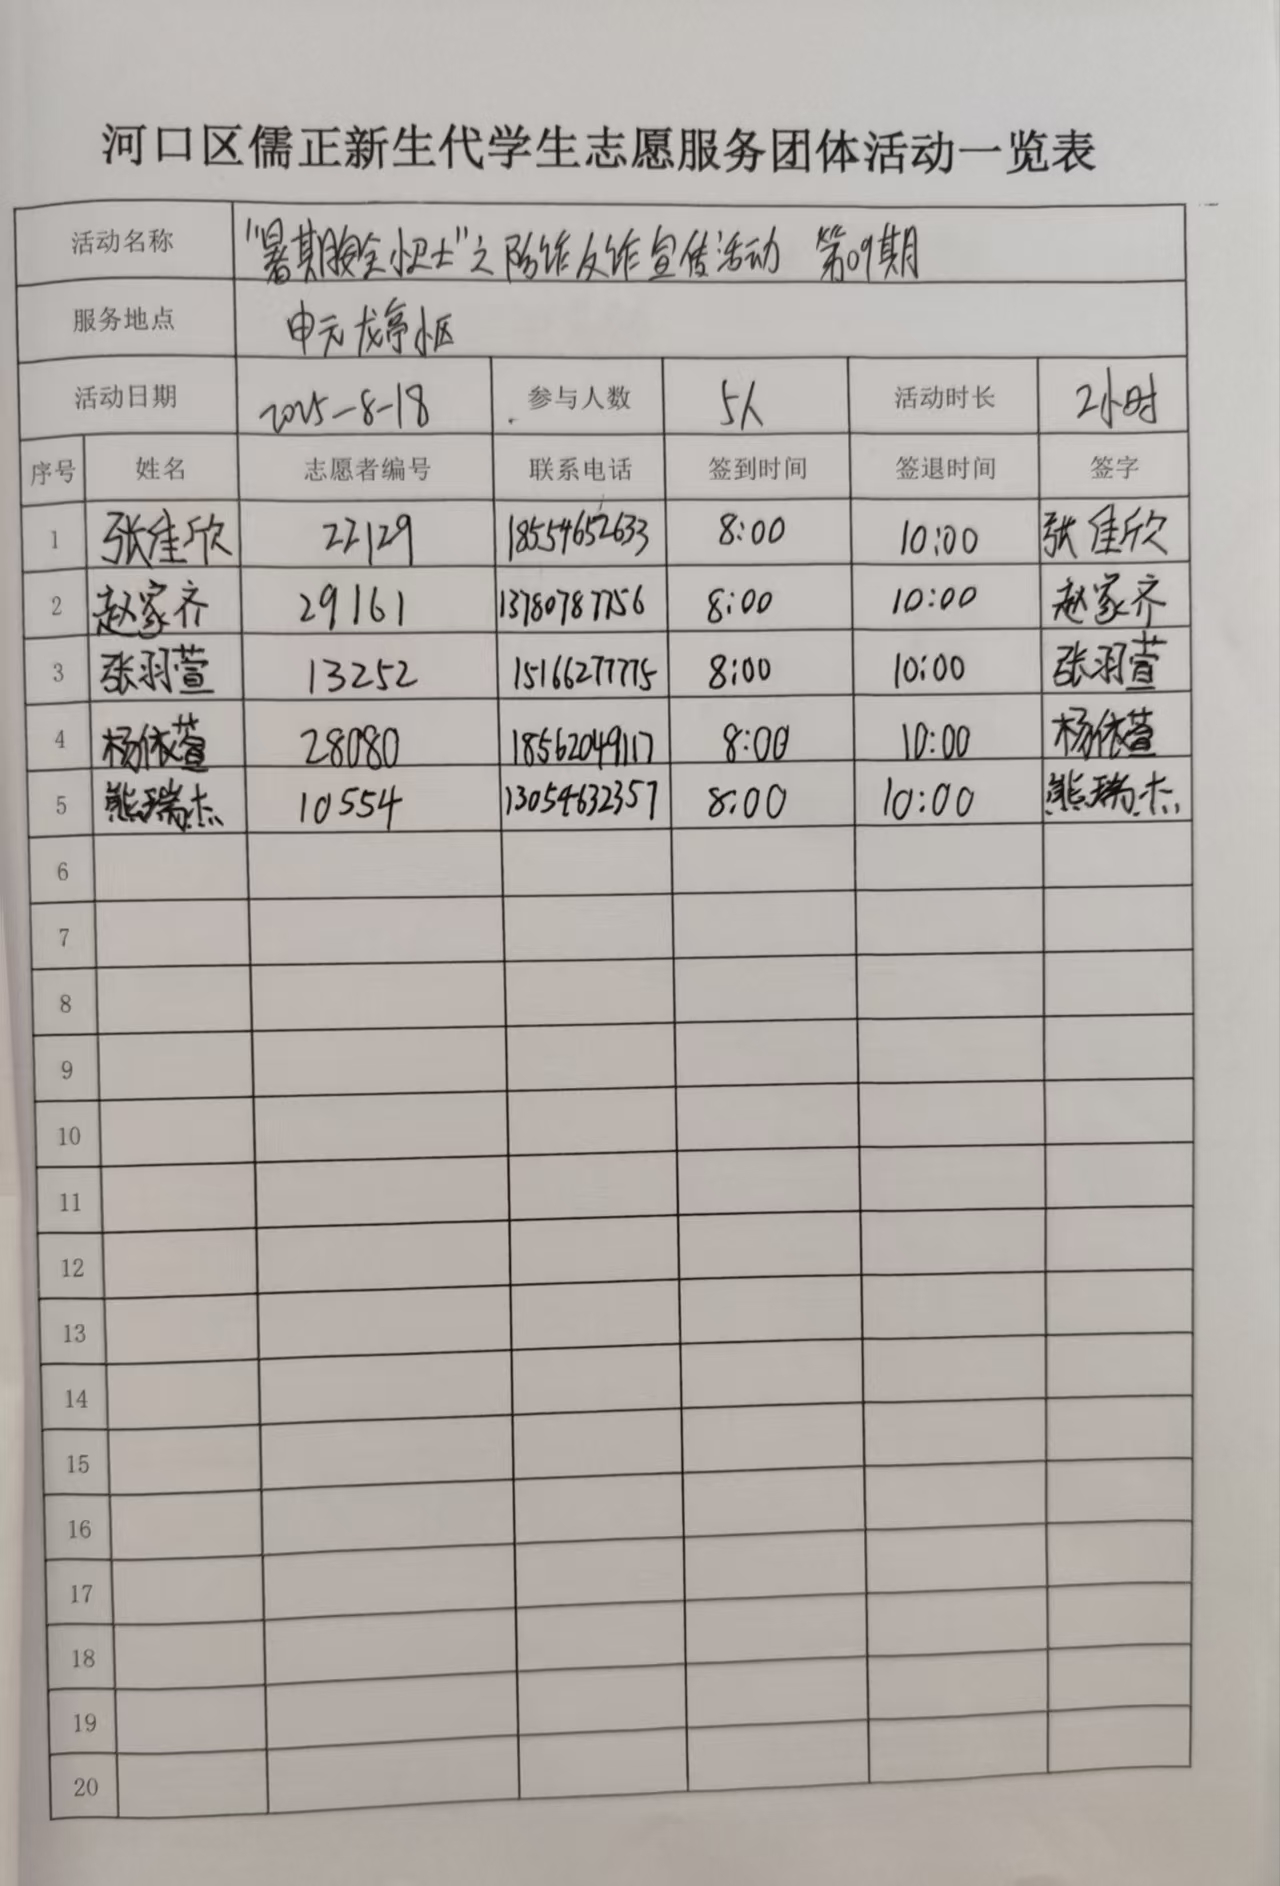 河口区儒正新生代学生志愿服务团体活动一览表
活动名称 "暑期安全小卫士"之防诈反诈宣传活动 第09期
服务地点 申元龙亭小区
活动日期 2025-8-18 参与人数 5人 活动时长 2小时
序号 姓名 志愿者编号 联系电话 签到时间 签退时间 签字
1 张佳欣 22129 18554652633 8:00 10:00 张佳欣
2 赵家齐 29161 13780787756 8:00 10:00 赵家齐
3 张羽萱 13252 15166277775 8:00 10:00 张羽萱
4 杨依萱 28080 18562049117 8:00 10:00 杨依萱
5 熊瑞杰 10554 13054632357 8:00 10:00 熊瑞杰
6
7
8
9
10
11
12
13
14
15
16
17
18
19
20